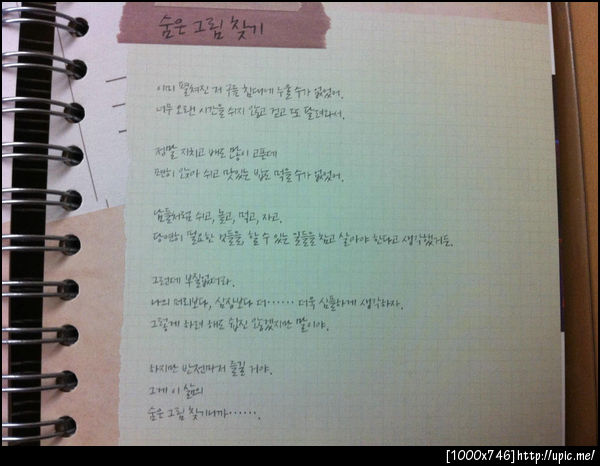 숨은 그림 찾기
이미 펼쳐진 저 구름 침대에 누울 수가 없었어.
너무 오랜 시간을 쉬지 않고 걷고 또 달려와서.
정말 지치고 배도 많이 고픈데
편히 앉아 쉬고 맛있는 밥도 먹을 수가 없었어.
남들처럼 쉬고, 놀고, 먹고, 자고.
당연히 필요한 것들을, 할 수 있는 일들을 참고 살아야 한다고 생각했거든.
그런데 부질없더라.
나의 머리보다, 심장보다 더…… 더욱 심플하게 생각하자.
그렇게 하려 해도 쉽진 않겠지만 말이야.
하지만 반전마저 즐길 거야.
그게 이 삶의
숨은 그림 찾기니까…….
[1000x746]http://upic.me/